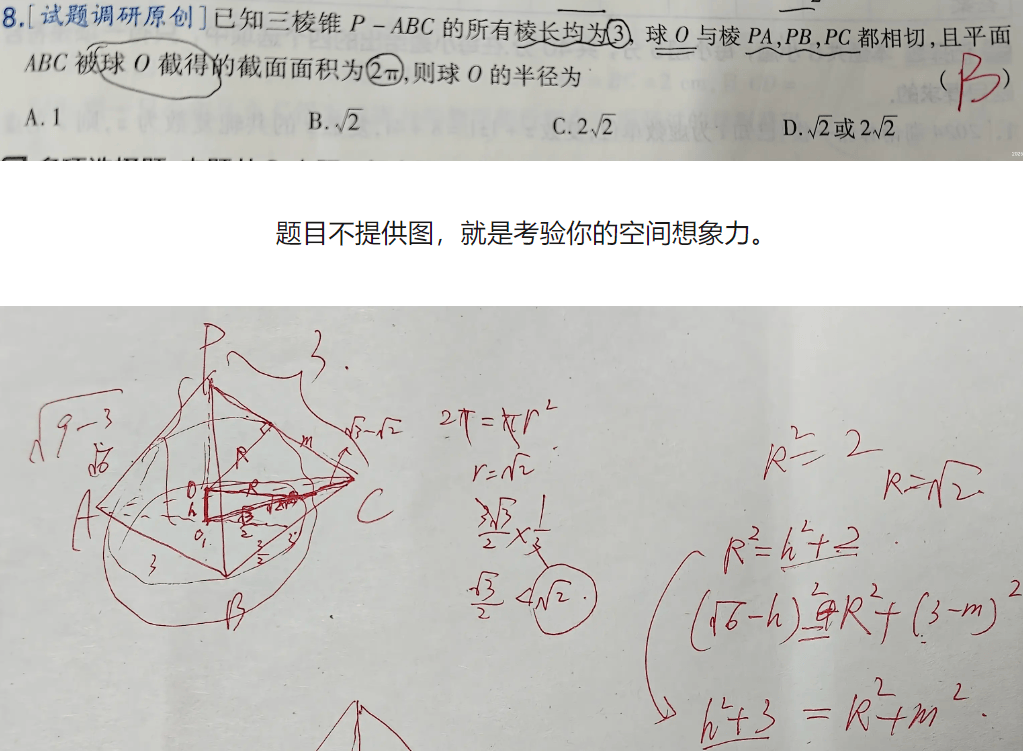 8.[试题调研原创]已知三棱锥 P－ABC 的所有棱长均为3，球 O 与棱 PA,PB,PC 都相切,且平面
ABC 被球 O 截得的截面面积为2π,则球 O 的半径为 （ B ）
A.1 B.√2 C.2√2 D.√2或2√2
题目不提供图，就是考验你的空间想象力。
P
3.
√9-3
√6
√3-√2
m
R
A
C
O
h
R
O₁
√3/2
3
B
2π=πr²
r=√2
3√3/2×1/3
√3/2<√2.
R²=2
R=√2.
R²=h²+2
(√6-h)²=R²+(3-m)²
h²+3=R²+m².